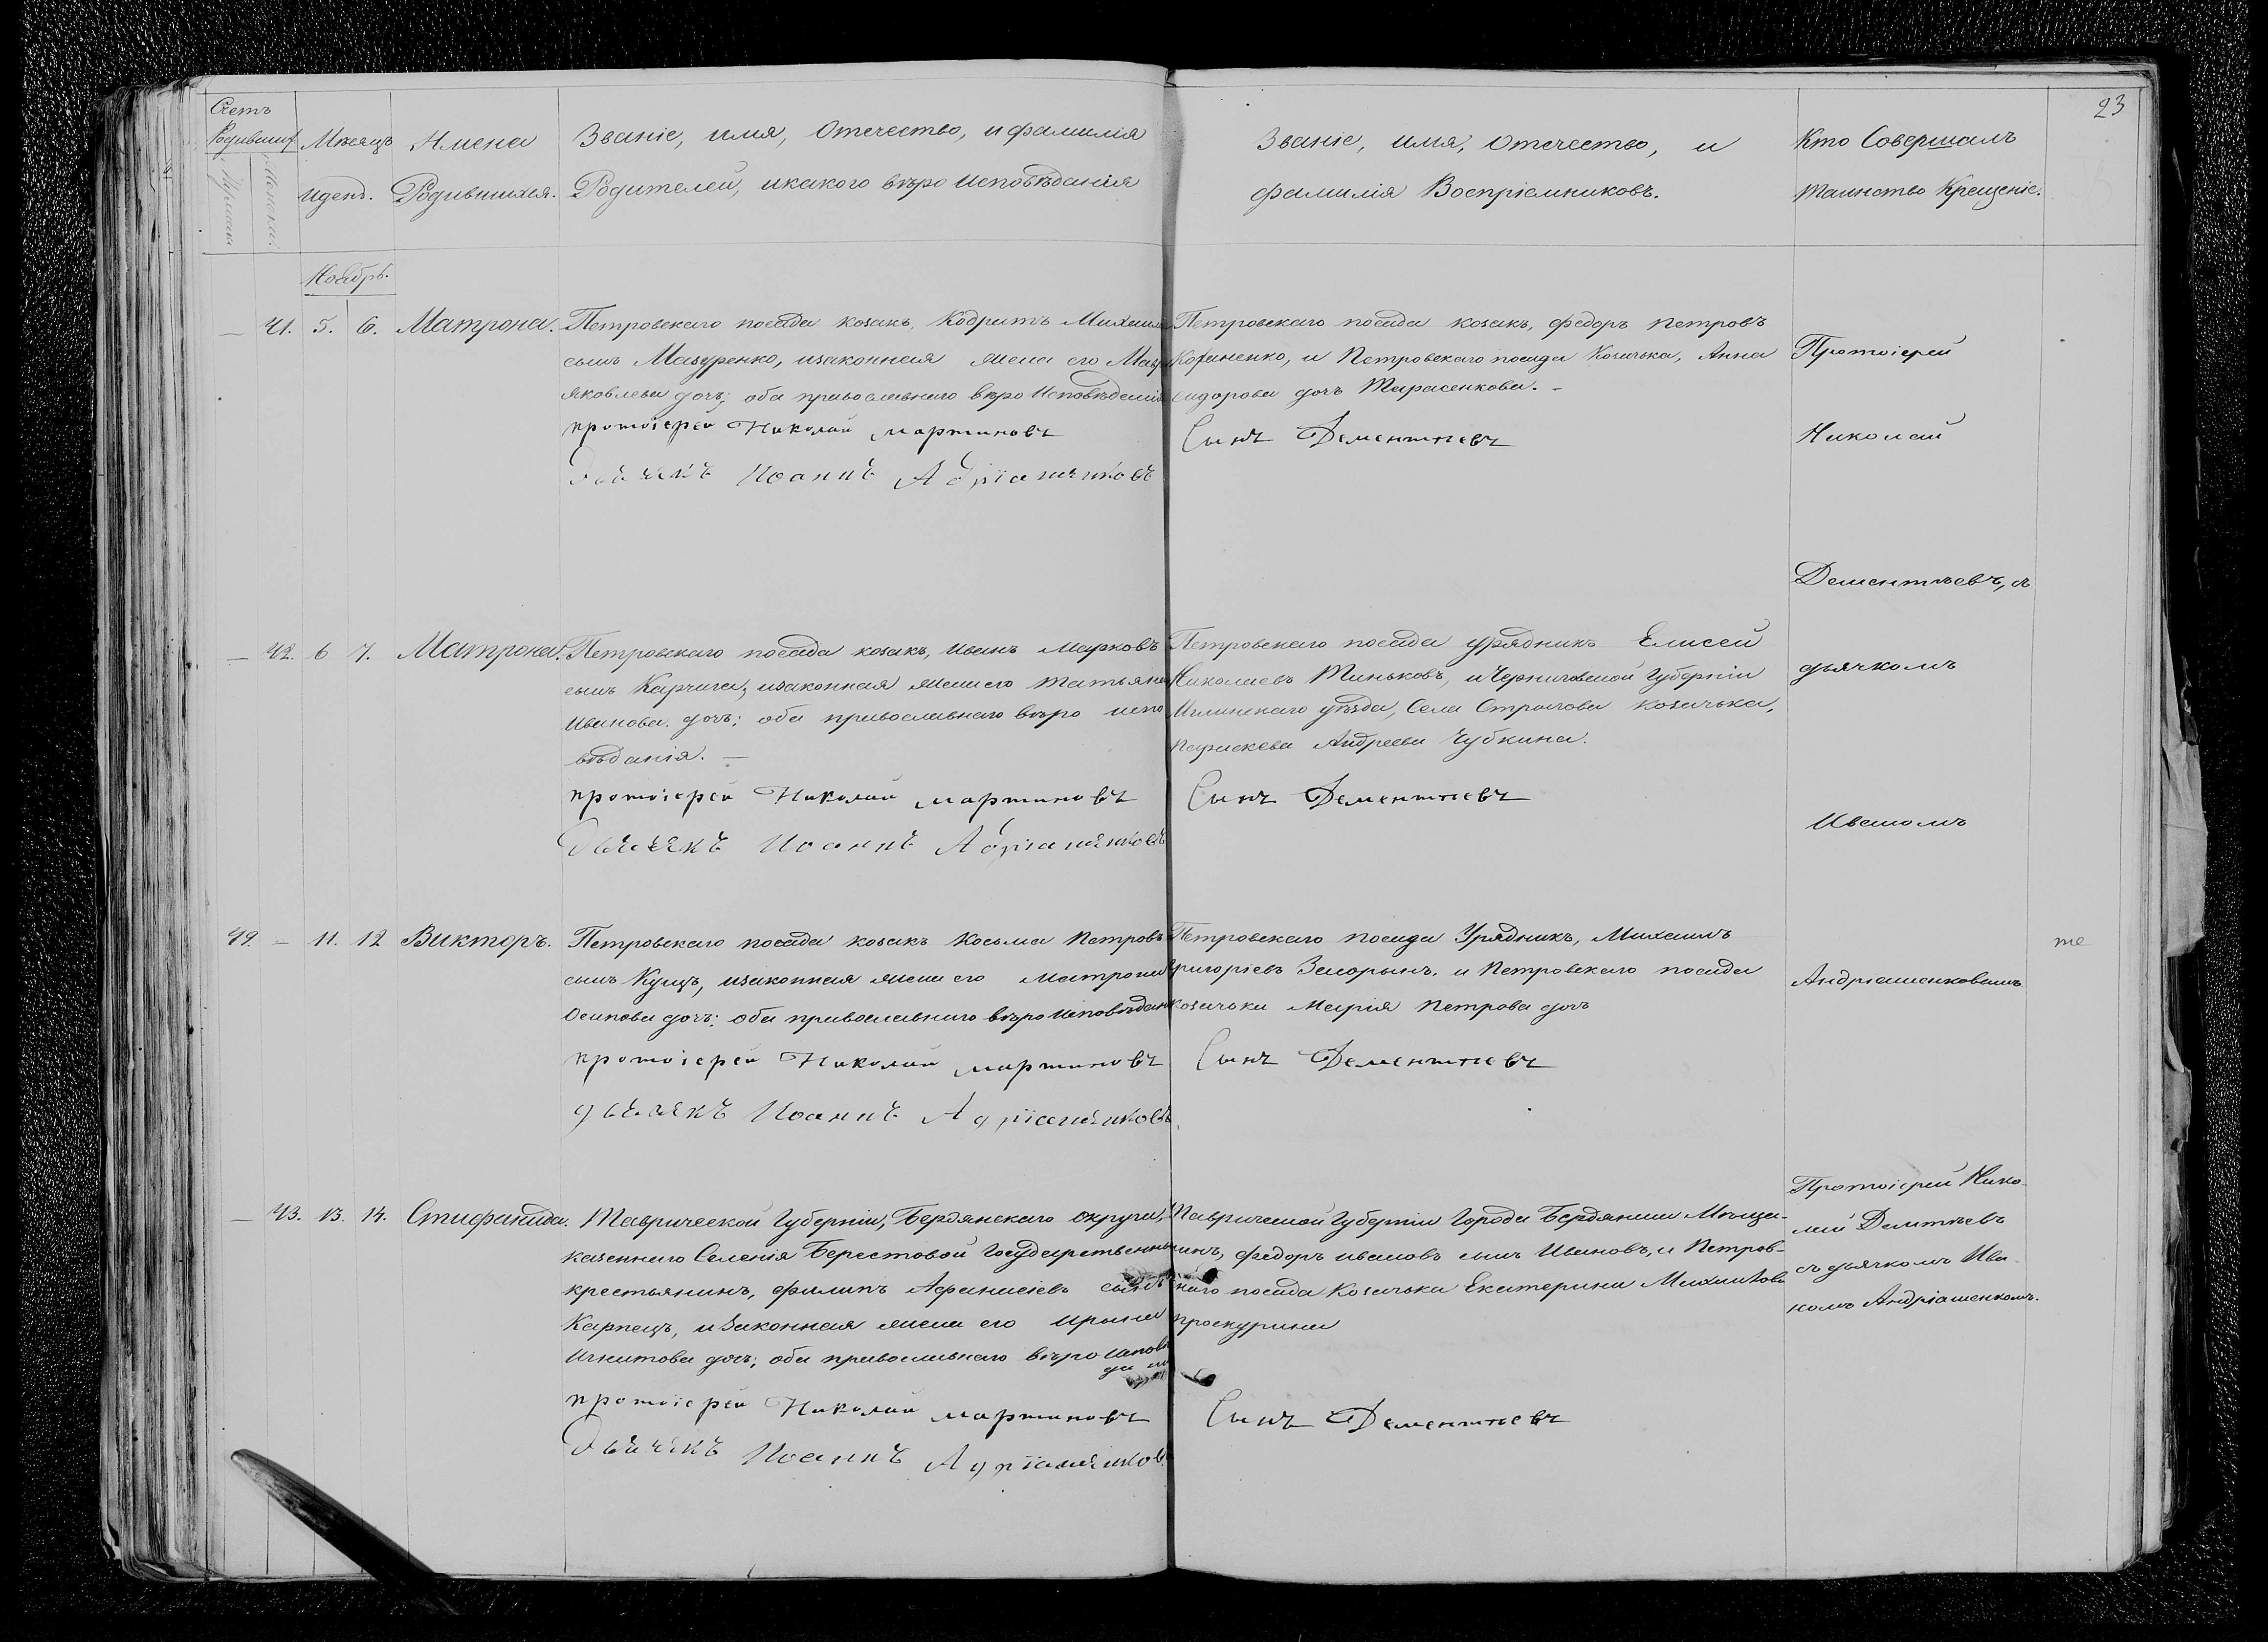 23
Счетъ
Родившихся
Мужеска
Женска.
Мѣсяцъ
иденъ.
Имена
Родившихся.
Званіе, имя, Отечество, и фамилія
Родителей, икакого вѣро Исповѣданія
Званіе, имя, Отечество, и
фамилія Воспріемниковъ.
Кто Совершалъ
таинство Крещеніе.
Ноябрь.
— 41. 5. 6. Матрона.
Петровскаго посада козакъ, Кодратъ Михаил
сынъ Мазуренко, изаконная жена его Мавр
Яковлева дочь; оба православнаго вѣро Исповѣдені
протоіерей Николай мартиновъ
Дьячекъ Иоаннъ Адріашенковъ
Петровскаго посада козакъ, федоръ петровъ
и Петровскаго посада Козачька, Анна
сидорова дочь Тарасенкова. –
Сынъ Дементьевъ
Протоіерей
Николай
Дементьевъ, съ
дьячкомъ
Иваномъ
Андріашенковымъ
— 42. 6 7. Матрона.
Петровскаго посада козакъ, Иванъ Марковъ
сынъ Карчига, изаконная жена его Татьяна
Иванова дочь; оба православнаго вѣро испо
вѣданія. —
протоіерей Николай мартиновъ
Дьячекъ Иоаннъ Адріашенковъ
Петровскаго посада урядникъ Елисей
Николаевъ Миньковъ, иЧерниговской Губерніи
Мглинскаго уѣзда, Села козачька,
параскева Андреева Чубкина.
Сынъ Дементьевъ
49. – 11. 12 Викторъ.
Петровскаго посада козакъ Косьма Петровъ
сынъ Кущъ, изаконная жена его Матрона
Осипова дочь; оба православнаго вѣро Исповѣдан
протоіерей Николай мартиновъ
дьячекъ Иоаннъ Адріашенковъ
Петровскаго посада Урядникъ, Михаилъ
григоріевъ и Петровскаго посада
козачька Марія Петрова дочь
Сынъ Дементьевъ
те
— 43. 13. 14. Стифанида.
Таврической Губерніи, Бердянскаго округа,
казеннаго Селенія Берестовой Государственны
крестьянинъ, филипъ Афанасіевъ сынъ
Карпецъ, изаконная жена его Ирына
Игнатова дочь; оба православнаго вѣро Исповѣ
да ні
протоіерей Николай мартиновъ
Дьячекъ Иоаннъ Адріашенков
Таврической Губерніи Города Бердянска Мѣща-
нинъ, федоръ ивановъ сынъ Ивановъ, и Петров-
скаго посада Козачька Екатерина Михайлова
проскурина
Сынъ Дементьевъ
Протоіерей Нико-
лай Демтьевъ
съ дьячкомъ Ива-
номъ Андріашенкомъ.